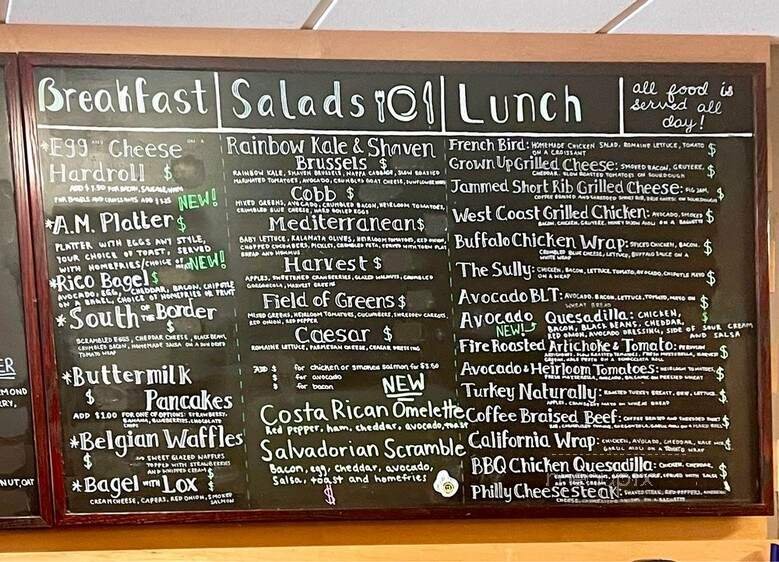 Breakfast
*Egg AND Cheese ON A
Hardroll $
ADD $1.50 FOR BACON, SAUSAGE, HAM
FOR BAGELS AND CROISSANTS ADD $1.25
NEW!
*A.M. Platter $
PLATTER WITH EGGS ANY STYLE,
YOUR CHOICE OF TOAST, SERVED
WITH HOMEFRIES/CHOICE OF MEAT
NEW!
*Rico Bagel $
AVOCADO, EGG, CHEDDAR, BACON, CHIPOTLE
ON A BAGEL, CHOICE OF HOMEFRIES OR FRUIT
*South OF THE Border
$
SCRAMBLED EGGS, CHEDDAR CHEESE, BLACK BEAN,
CRUMBLED BACON, HOMEMADE SALSA ON A SUN DRIED
TOMATO WRAP
*Buttermilk
$ Pancakes
ADD $1.00 FOR ONE OF OPTIONS: STRAWBERRY,
BANANA, BLUEBERRIES, CHOCOLATE
CHIPS
*Belgian Waffles
$
AND SWEET GLAZED WAFFLES
TOPPED WITH STRAWBERRIES
AND WHIPPED CREAM
*Bagel WITH Lox $
CREAM CHEESE, CAPERS, RED ONION, SMOKED
SALMON
Salads
Rainbow Kale & Shaven
Brussels $
RAINBOW KALE, SHAVEN BRUSSELS, NAPPA CABBAGE, SLOW ROASTED
MARINATED TOMATOES, AVOCADO, CRUMBLED GOAT CHEESE, SUNFLOWER
Cobb $
MIXED GREENS, AVOCADO, CRUMBLED BACON, HEIRLOOM TOMATOES,
CRUMBLED BLUE CHEESE, HARD BOILED EGGS
Mediterranean $
BABY LETTUCE, KALAMATA OLIVES, HEIRLOOM TOMATOES, RED ONION,
CHOPPED CUCUMBERS, PICKLES, CRUMBLED FETA, SERVED WITH TOAST FLAT
BREAD AND HUMMUS
Harvest $
APPLES, SWEETENED CRANBERRIES, GLAZED WALNUTS, CRUMBLED
GORGONZOLA, HARVEST GREENS
Field of Greens $
MIXED GREENS, HEIRLOOM TOMATOES, CUCUMBERS, SHREDDED CARROTS,
RED ONION, RED PEPPER
Caesar $
ROMAINE LETTUCE, PARMESAN CHEESE, CAESAR DRESSING
ADD $ for chicken or smoked salmon for $3.50
$ for avocado
$ for bacon
NEW
Costa Rican Omelette
Red pepper, ham, cheddar, avocado, toast
Salvadorian Scramble
Bacon, egg, cheddar, avocado,
Salsa, toast and homefries
$
Lunch
all food is
served all
day!
French Bird: HOMEMADE CHICKEN SALAD, ROMAINE LETTUCE, TOMATO
ON A CROISSANT $
Grown Up Grilled Cheese: SMOKED BACON, GRUYERE,
CHEDDAR, SLOW ROASTED TOMATOES ON SOURDOUGH $
Jammed Short Rib Grilled Cheese: FIG JAM,
COFFEE BRAISED AND SHREDDED SHORT RIB, BRIE CHEESE, ON SOURDOUGH $
West Coast Grilled Chicken: AVOCADO, SMOKED
BACON, CHICKEN, GRUYERE, HONEY DIJON AIOLI ON A BAGUETTE $
Buffalo Chicken Wrap: SPICED CHICKEN, BACON,
CRUMBLED BLUE CHEESE, LETTUCE, BUFFALO SAUCE ON A
WHITE WRAP $
The Sully: CHICKEN, BACON, LETTUCE, TOMATO, AVOCADO, CHIPOTLE MAYO
ON A WRAP $
Avocado BLT: AVOCADO, BACON, LETTUCE, TOMATO, MAYO ON
WHEAT BREAD $
Avocado Quesadilla: CHICKEN, $
NEW! BACON, BLACK BEANS, CHEDDAR,
RED ONION, AVOCADO DRESSING, SIDE OF SOUR CREAM
AND SALSA
Fire Roasted Artichoke & Tomato:
$
Avocado & Heirloom Tomatoes: HEIRLOOM TOMATOES,
FRESH MOZZARELLA, AVOCADO, BALSAMIC ON PRESSED WHEAT $
Turkey Naturally: ROASTED TURKEY BREAST, BRIE, LETTUCE,
APPLES, CRANBERRY MAYO ON WHEAT BREAD $
Coffee Braised Beef: COFFEE BRAISED AND SHREDDED SHORT $
California Wrap: CHICKEN, AVOCADO, CHEDDAR, KALE MIX,
GARLIC AIOLI ON A TOMATO WRAP $
BBQ Chicken Quesadilla: CHICKEN, CHEDDAR, $
Philly Cheesesteak: SHAVED STEAK, RED PEPPERS, AMERICAN $
ER
MOND
RRY,
NUT, OAT